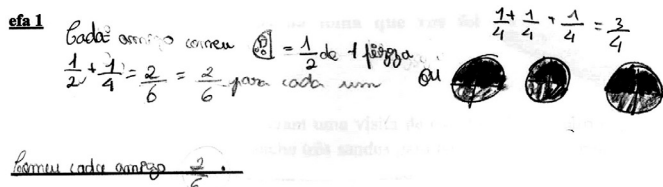 efa 1
Cada amigo comeu = 1/2 de 1 pizza
1/2 + 1/4 = 2/6 = 2/6 para cada um
ou
1/4 + 1/4 + 1/4 = 3/4
Comeu cada amigo 2/6.